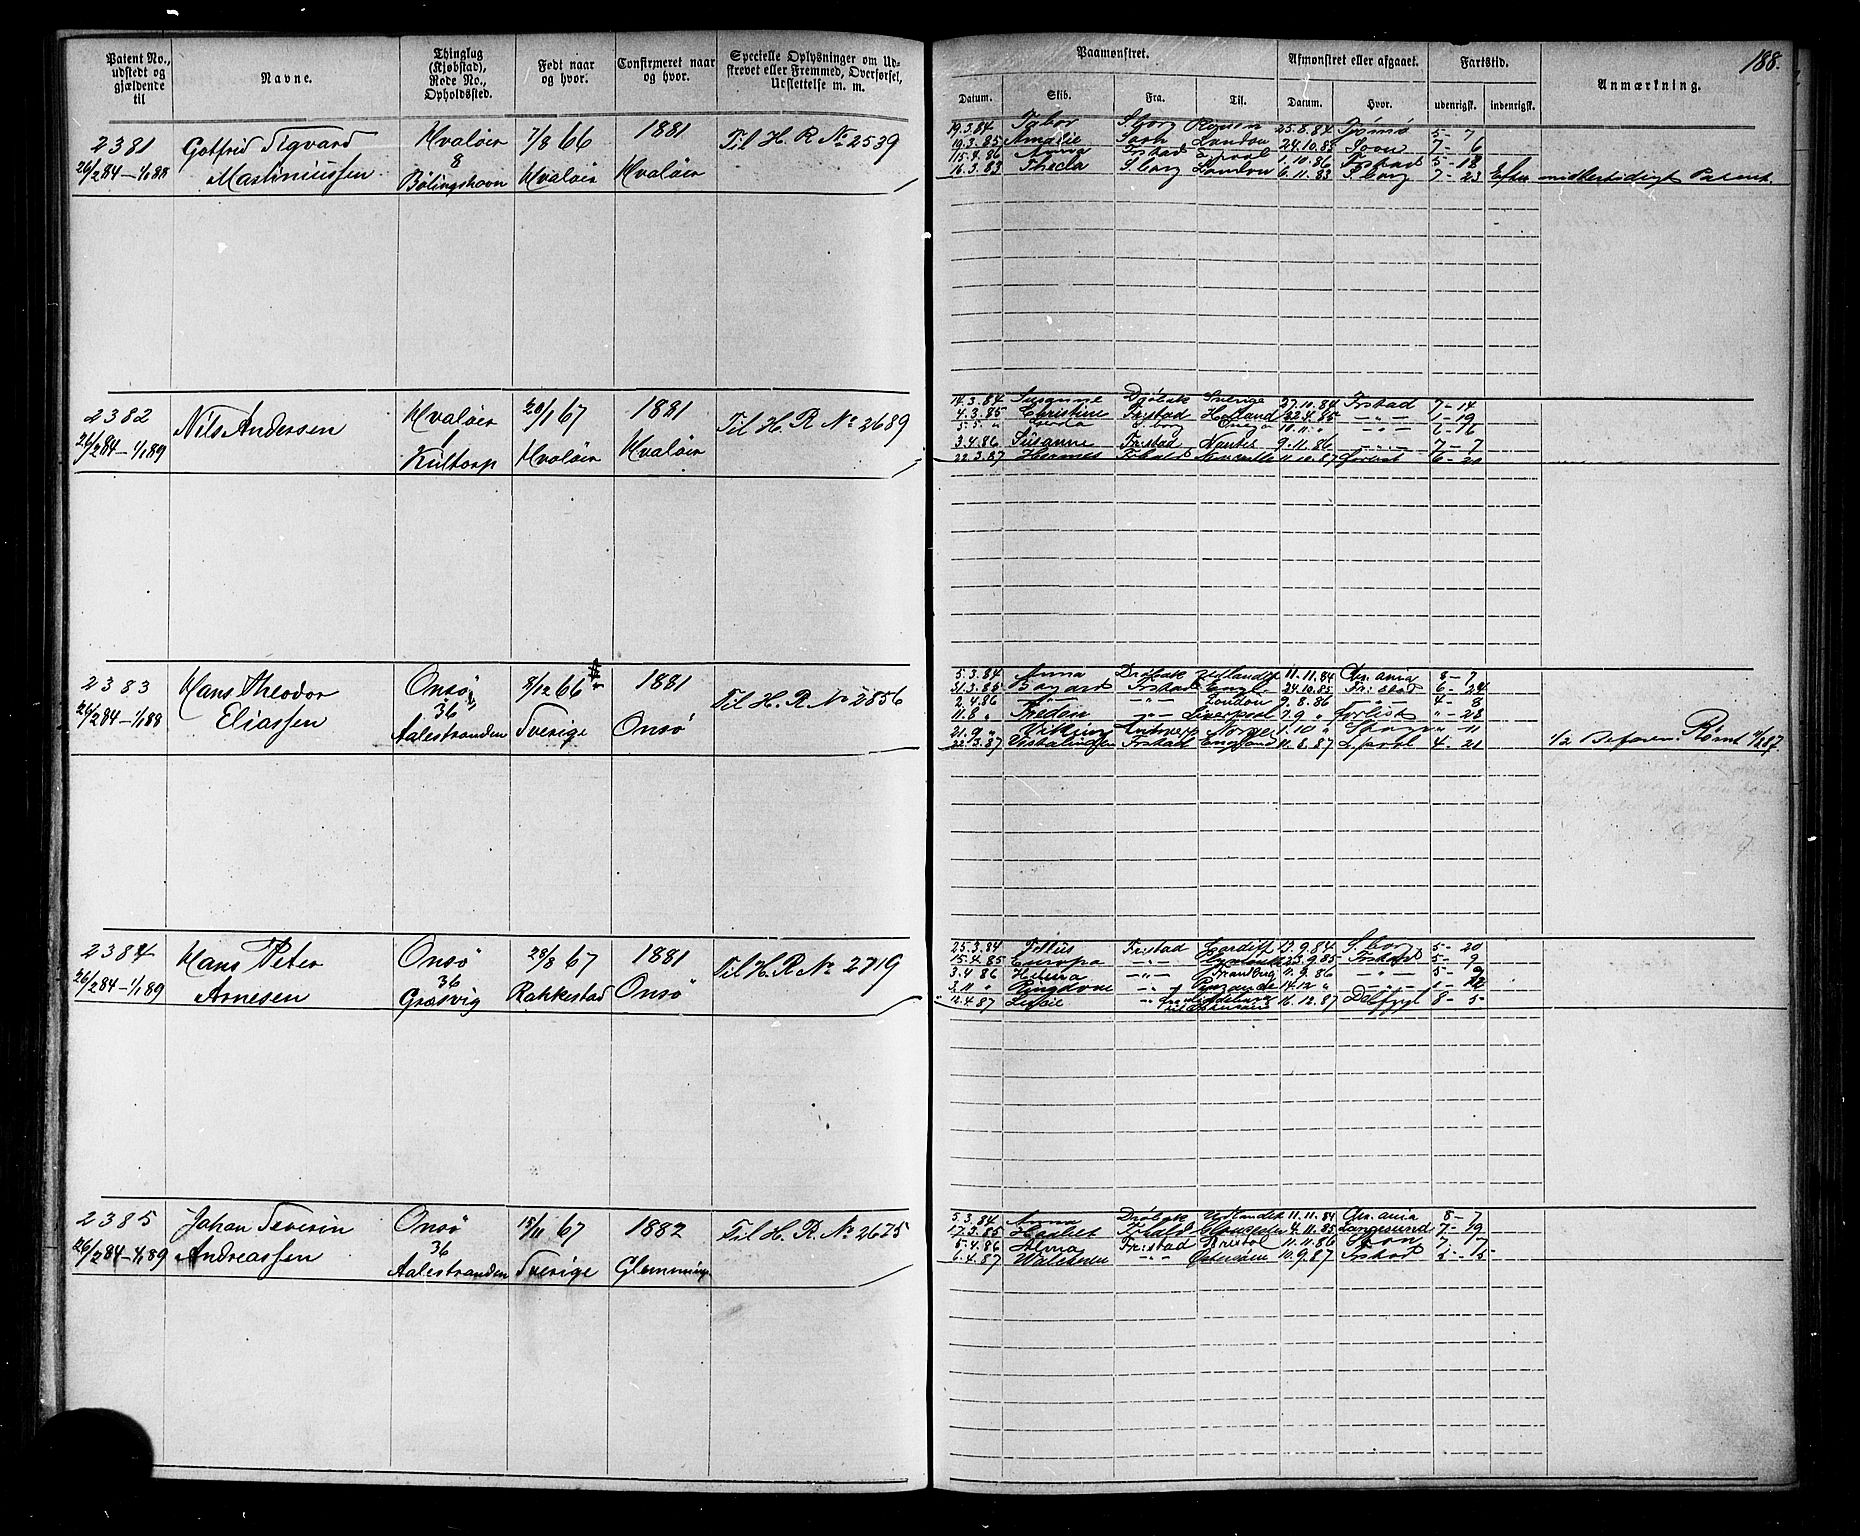 188.
Patent No., udstedt og gjældende til
Navne.
Thinglag (Kjøbstad), Rode No., Opholdssted.
Født naar og hvor.
Confirmeret naar og hvor.
Specielle Oplysninger om Udskrevet eller Fremmed, Overførsel, Udslettelse m. m.
Paamønstret.
Datum.
Skib.
Fra.
Til.
Afmønstret eller afgaaet.
Datum.
Hvor.
Fartstid.
udenrigsk.
indenrigsk.
Anmærkning.
2381 Gotfrid Sigvard Hvaløer 7/8 66 1881 Til H. R. No 2539
26/2 84 – 1/1 88 Martiniussen 8 Bølingshavn Hvaløer Hvaløer
19.3.84 Tabor S.borg 25.8.84 5 - 7
19.3.85 Amalie Sarb. London 24.10.85 7 - 6
Anna Frstad 1.10.86 Frstad 5 - 18
16.3.83 Thecla S.borg London 6.11.83 S.borg 7 - 23 Efter midlertidigt Patent.
2382 Nils Andersen Hvaløer 20/1 67 1881 Til H. R. No 2689
26/2 84 – 1/1 89 1 Kiltorp Hvaløer Hvaløer
14.3.84 Susanne Drøbak Sverige 27.10.84 Frstad 7 - 14
4.3.85 Christine Frstad Holland 22.4.85 – " – 1 - 19
5.5. " S.borg 10.11. " – " – 6 - 6
3.4.86 Susanne Frstad Nantes 9.11.86 – " – 7 - 7
22.3.87 Hermes Frstad Newcastle 11.10.87 Forlist 6 - 20
2383 Hans Theodor Onsø 8/12 66 1881 Til H. R. No 2856
26/2 84 – 1/1 88 Eliassen 36 Aalestranden Sverige Onsø
5.3.84 Anna Drøbak Udlandet 11.11.84 Chr.ania 8 - 7
31.3.85 Bayard Frstad Engl. 24.10.85 Fr.stad 6 - 24
2.4.86 " – " – London 9.8.86 – " – 4 - 8
11.8. " Fredon – " – Liverpool 7.9. " Forlist " - 28
21.9. " Viking Antverp Norge 1.10 " " - 11
22.3.87 Frstad England 11.8.87 L.pool 4 - 21 1/2 Befaren. Rømt 11/8 87.
2384 Hans Peter Onsø 28/8 67 1881 Til H. R. No 2719
26/2 84 – 1/1 89 Arnesen 36 Græsvig Rakkestad Onsø
25.3.84 Frstad Cardiff 13.9.84 S.borg 5 - 20
15.4.85 Europa – " – Plymouth 23.9.85 Frstad 5 - 9
3.4.86 Hilma – " – 11.9.86 – " – 5 - 9
3.11 " Ringdove – " – 14.12 " – " – 1 - 12
12.4.87 – " – 16.12.87 Delfzyl 8 - 5
2385 Johan Severin Onsø 15/11 67 1882 Til H. R. No 2675
26/2 84 – 1/1 89 Andreassen 36 Aalestranden Sverige Glemminge
5.3.84 Anna Drøbak Udlandet 11.11.84 Chr.ania 8 - 7
17.3.85 Frstad 4.11.85 Langesund 7 - 19
5.4.86 Alma Fristad Bristol 11.11.86 7 - 7
6.4.87 – " – 10.9.87 Frstad 5 - 5